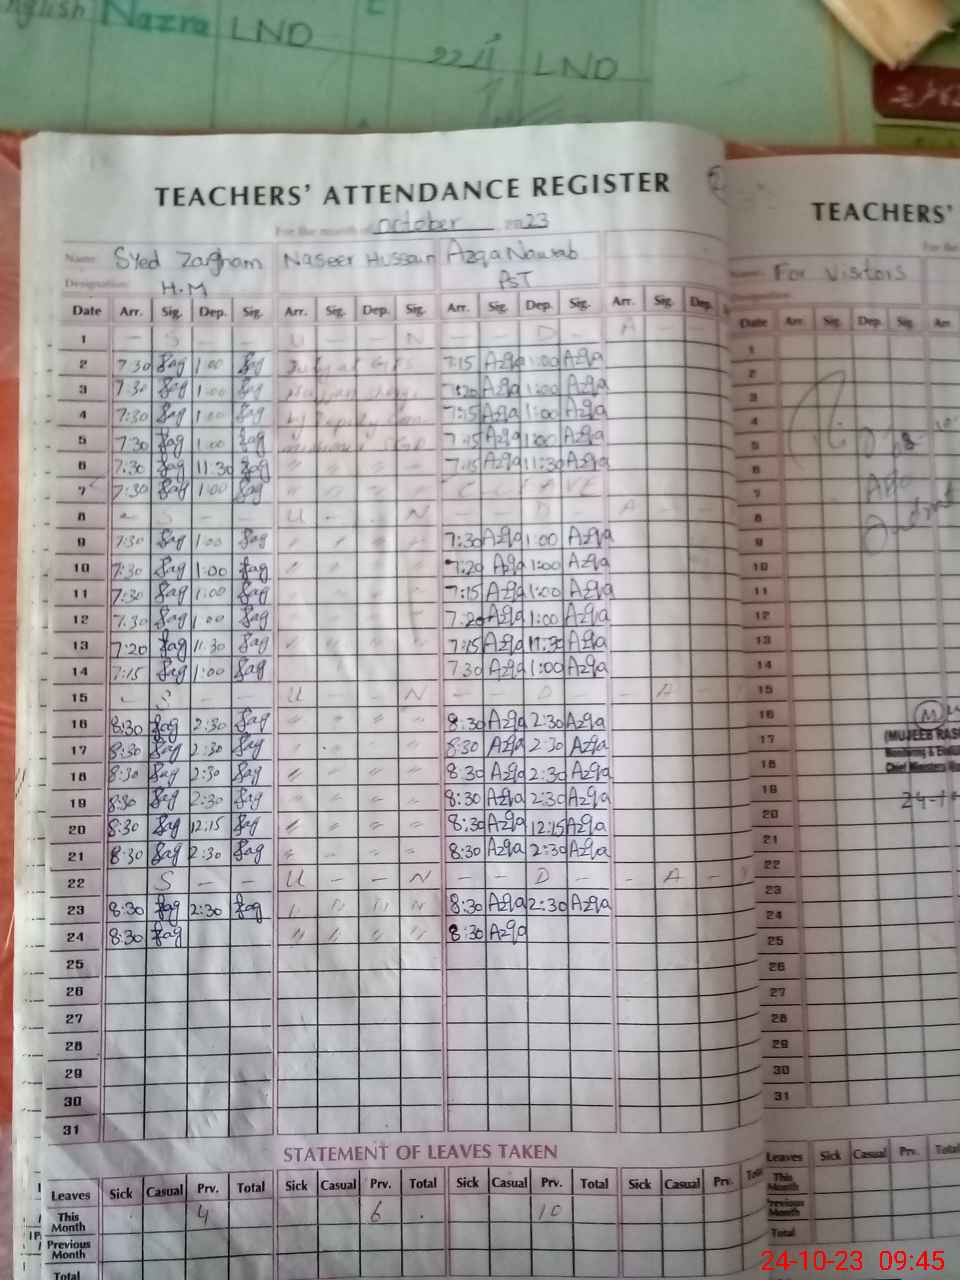 English Nazra LND
LND
TEACHERS' ATTENDANCE REGISTER
For the month of october 2023
Name: Syed Zargham Naseer Hussain Azqa Nawab
Designation: H.M PST
Date Arr. Sig. Dep. Sig. Arr. Sig. Dep. Sig. Arr. Sig. Dep. Sig. Arr. Sig. Dep.
1 - S - - U - - N - - D - - A - -
2 7:30 Zag 1:00 Zag 7:15 Azqa 1:00 Azqa
3 7:30 Zag 1:00 Zag 7:20 Azqa 1:00 Azqa
4 7:30 Zag 1:00 Zag 7:15 Azqa 1:00 Azqa
5 7:30 Zag 1:00 Zag 7:15 Azqa 1:00 Azqa
6 7:30 Zag 11:30 Zag " " " " 7:15 Azqa 11:30 Azqa
7 7:30 Zag 1:00 Zag " " " " C LEAVE
8 - S - - U - - N - - D - - A - -
9 7:30 Zag 1:00 Zag " " " " 7:30 Azqa 1:00 Azqa
10 7:30 Zag 1:00 Zag " " " " 7:20 Azqa 1:00 Azqa
11 7:30 Zag 1:00 Zag " " " " 7:15 Azqa 1:00 Azqa
12 7:30 Zag 1:00 Zag " " " " 7:20 Azqa 1:00 Azqa
13 7:20 Zag 11:30 Zag " " " " 7:15 Azqa 11:30 Azqa
14 7:15 Zag 1:00 Zag " " " " 7:30 Azqa 1:00 Azqa
15 - S - - U - - N - - D - - A -
16 8:30 Zag 2:30 Zag " " " " 8:30 Azqa 2:30 Azqa
17 8:30 Zag 2:30 Zag " " " " 8:30 Azqa 2:30 Azqa
18 8:30 Zag 2:30 Zag " " " " 8:30 Azqa 2:30 Azqa
19 8:30 Zag 2:30 Zag " " " " 8:30 Azqa 2:30 Azqa
20 8:30 Zag 12:15 Zag " " " " 8:30 Azqa 12:15 Azqa
21 8:30 Zag 2:30 Zag " " " " 8:30 Azqa 2:30 Azqa
22 S - - U - - N - - D - - A -
23 8:30 Zag 2:30 Zag " " " " 8:30 Azqa 2:30 Azqa
24 8:30 Zag " " " " 8:30 Azqa
25
26
27
28
29
30
31
STATEMENT OF LEAVES TAKEN
Leaves Sick Casual Prv. Total Sick Casual Prv. Total Sick Casual Prv. Total Sick Casual Prv. Total
This Month 4 6 10
Previous Month
Total
TEACHERS'
For the
Name: For Visitors
Designation:
Date Arr. Sig. Dep. Sig. Arr.
1
2
3
4
5
6
7
8
9
10
11
12
13
14
15
16
17
18
19
20
21
22
23
24
25
26
27
28
29
30
31
(MUJEEB RAS
Monitoring & Evalu
Chief Ministers
Leaves Sick Casual Prv. Total
This Month
Previous Month
Total
24-10-23 09:45